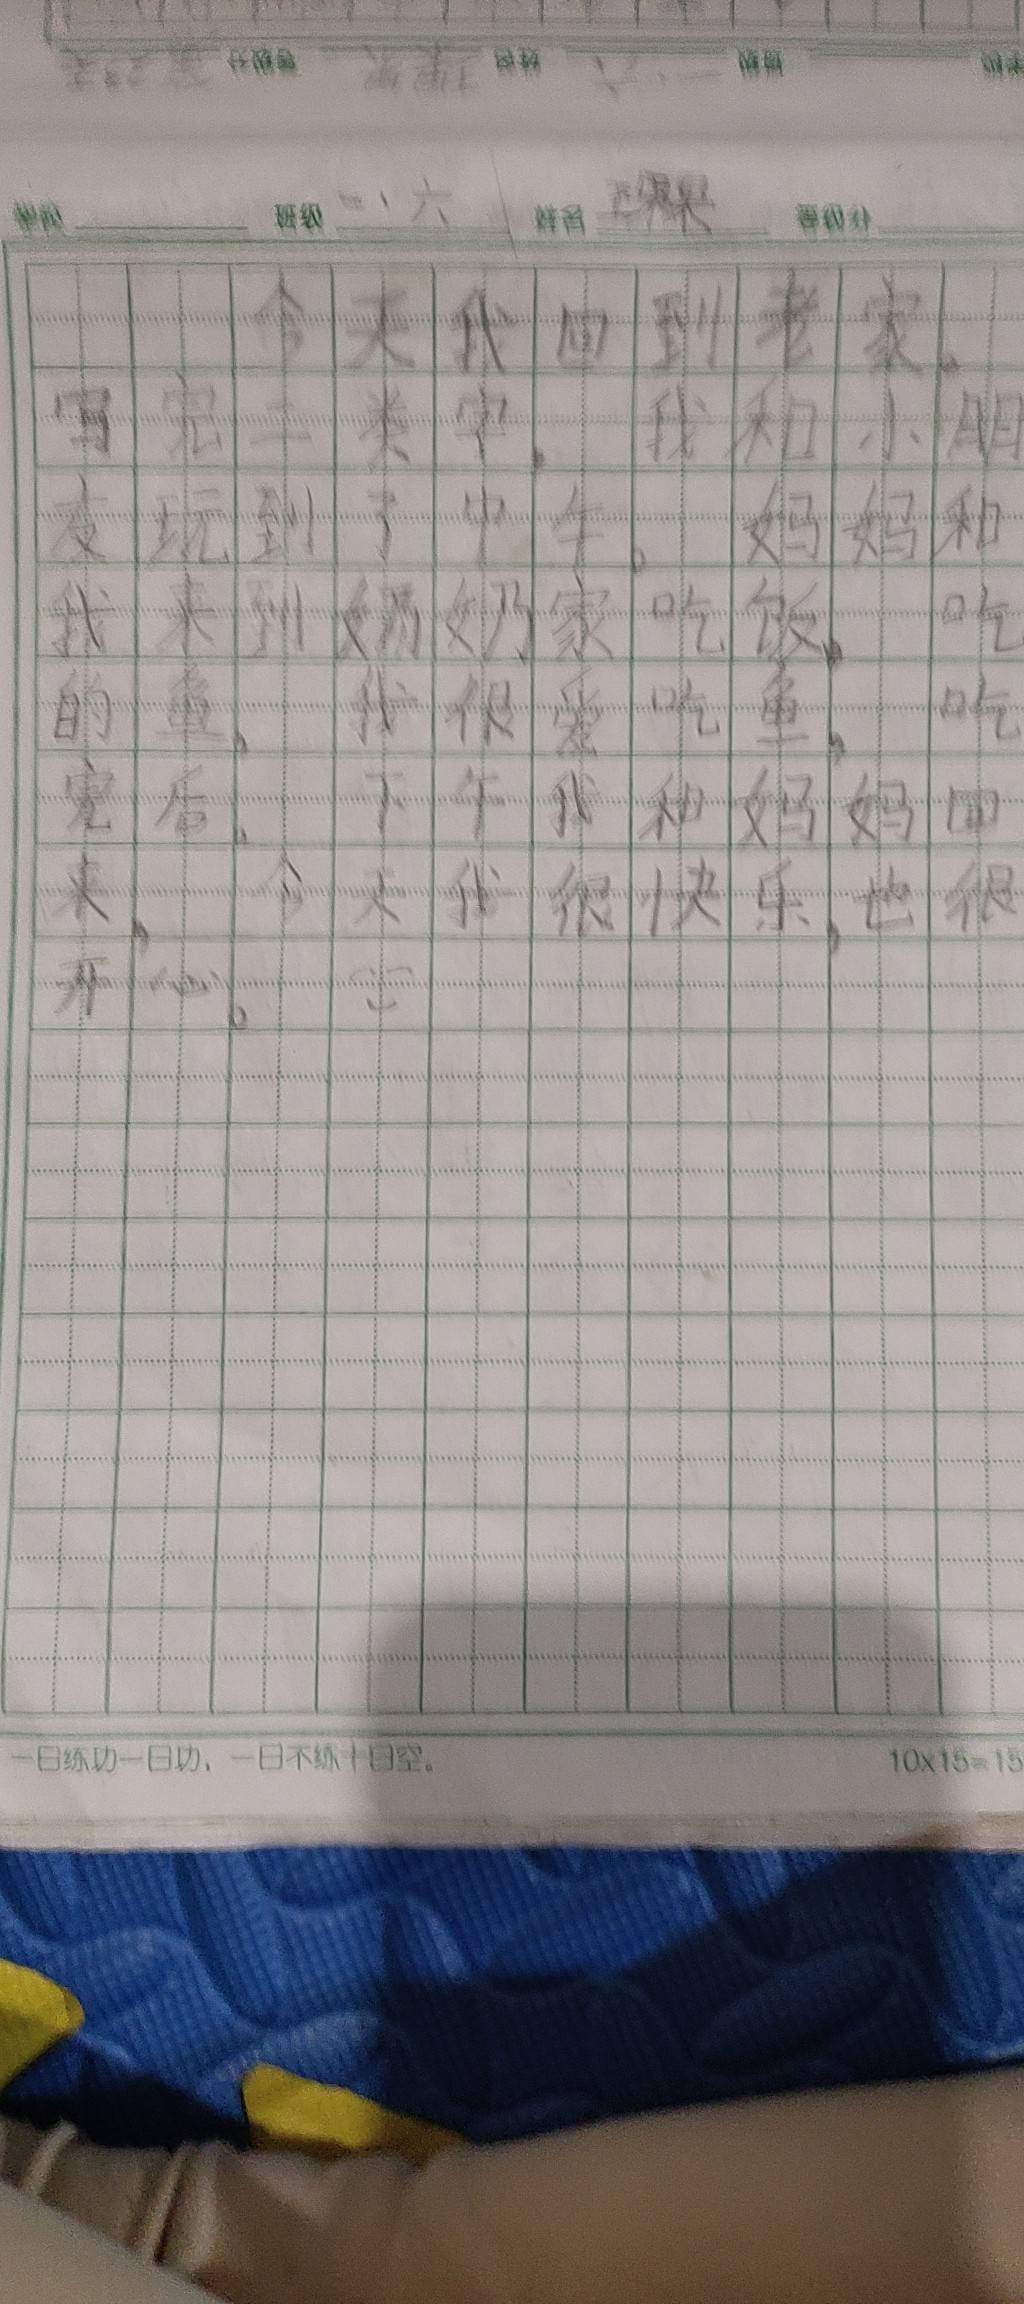 一、六
今天我回到老家。
写完二类字，我和小朋
友玩到了中午。妈妈和
我来到奶奶家吃饭，吃
的鱼，我很爱吃鱼，吃
完后，下午我和妈妈回
来，今天我很快乐，也很
开心。
一日练功一日功，一日不练十日空。
10x15=15